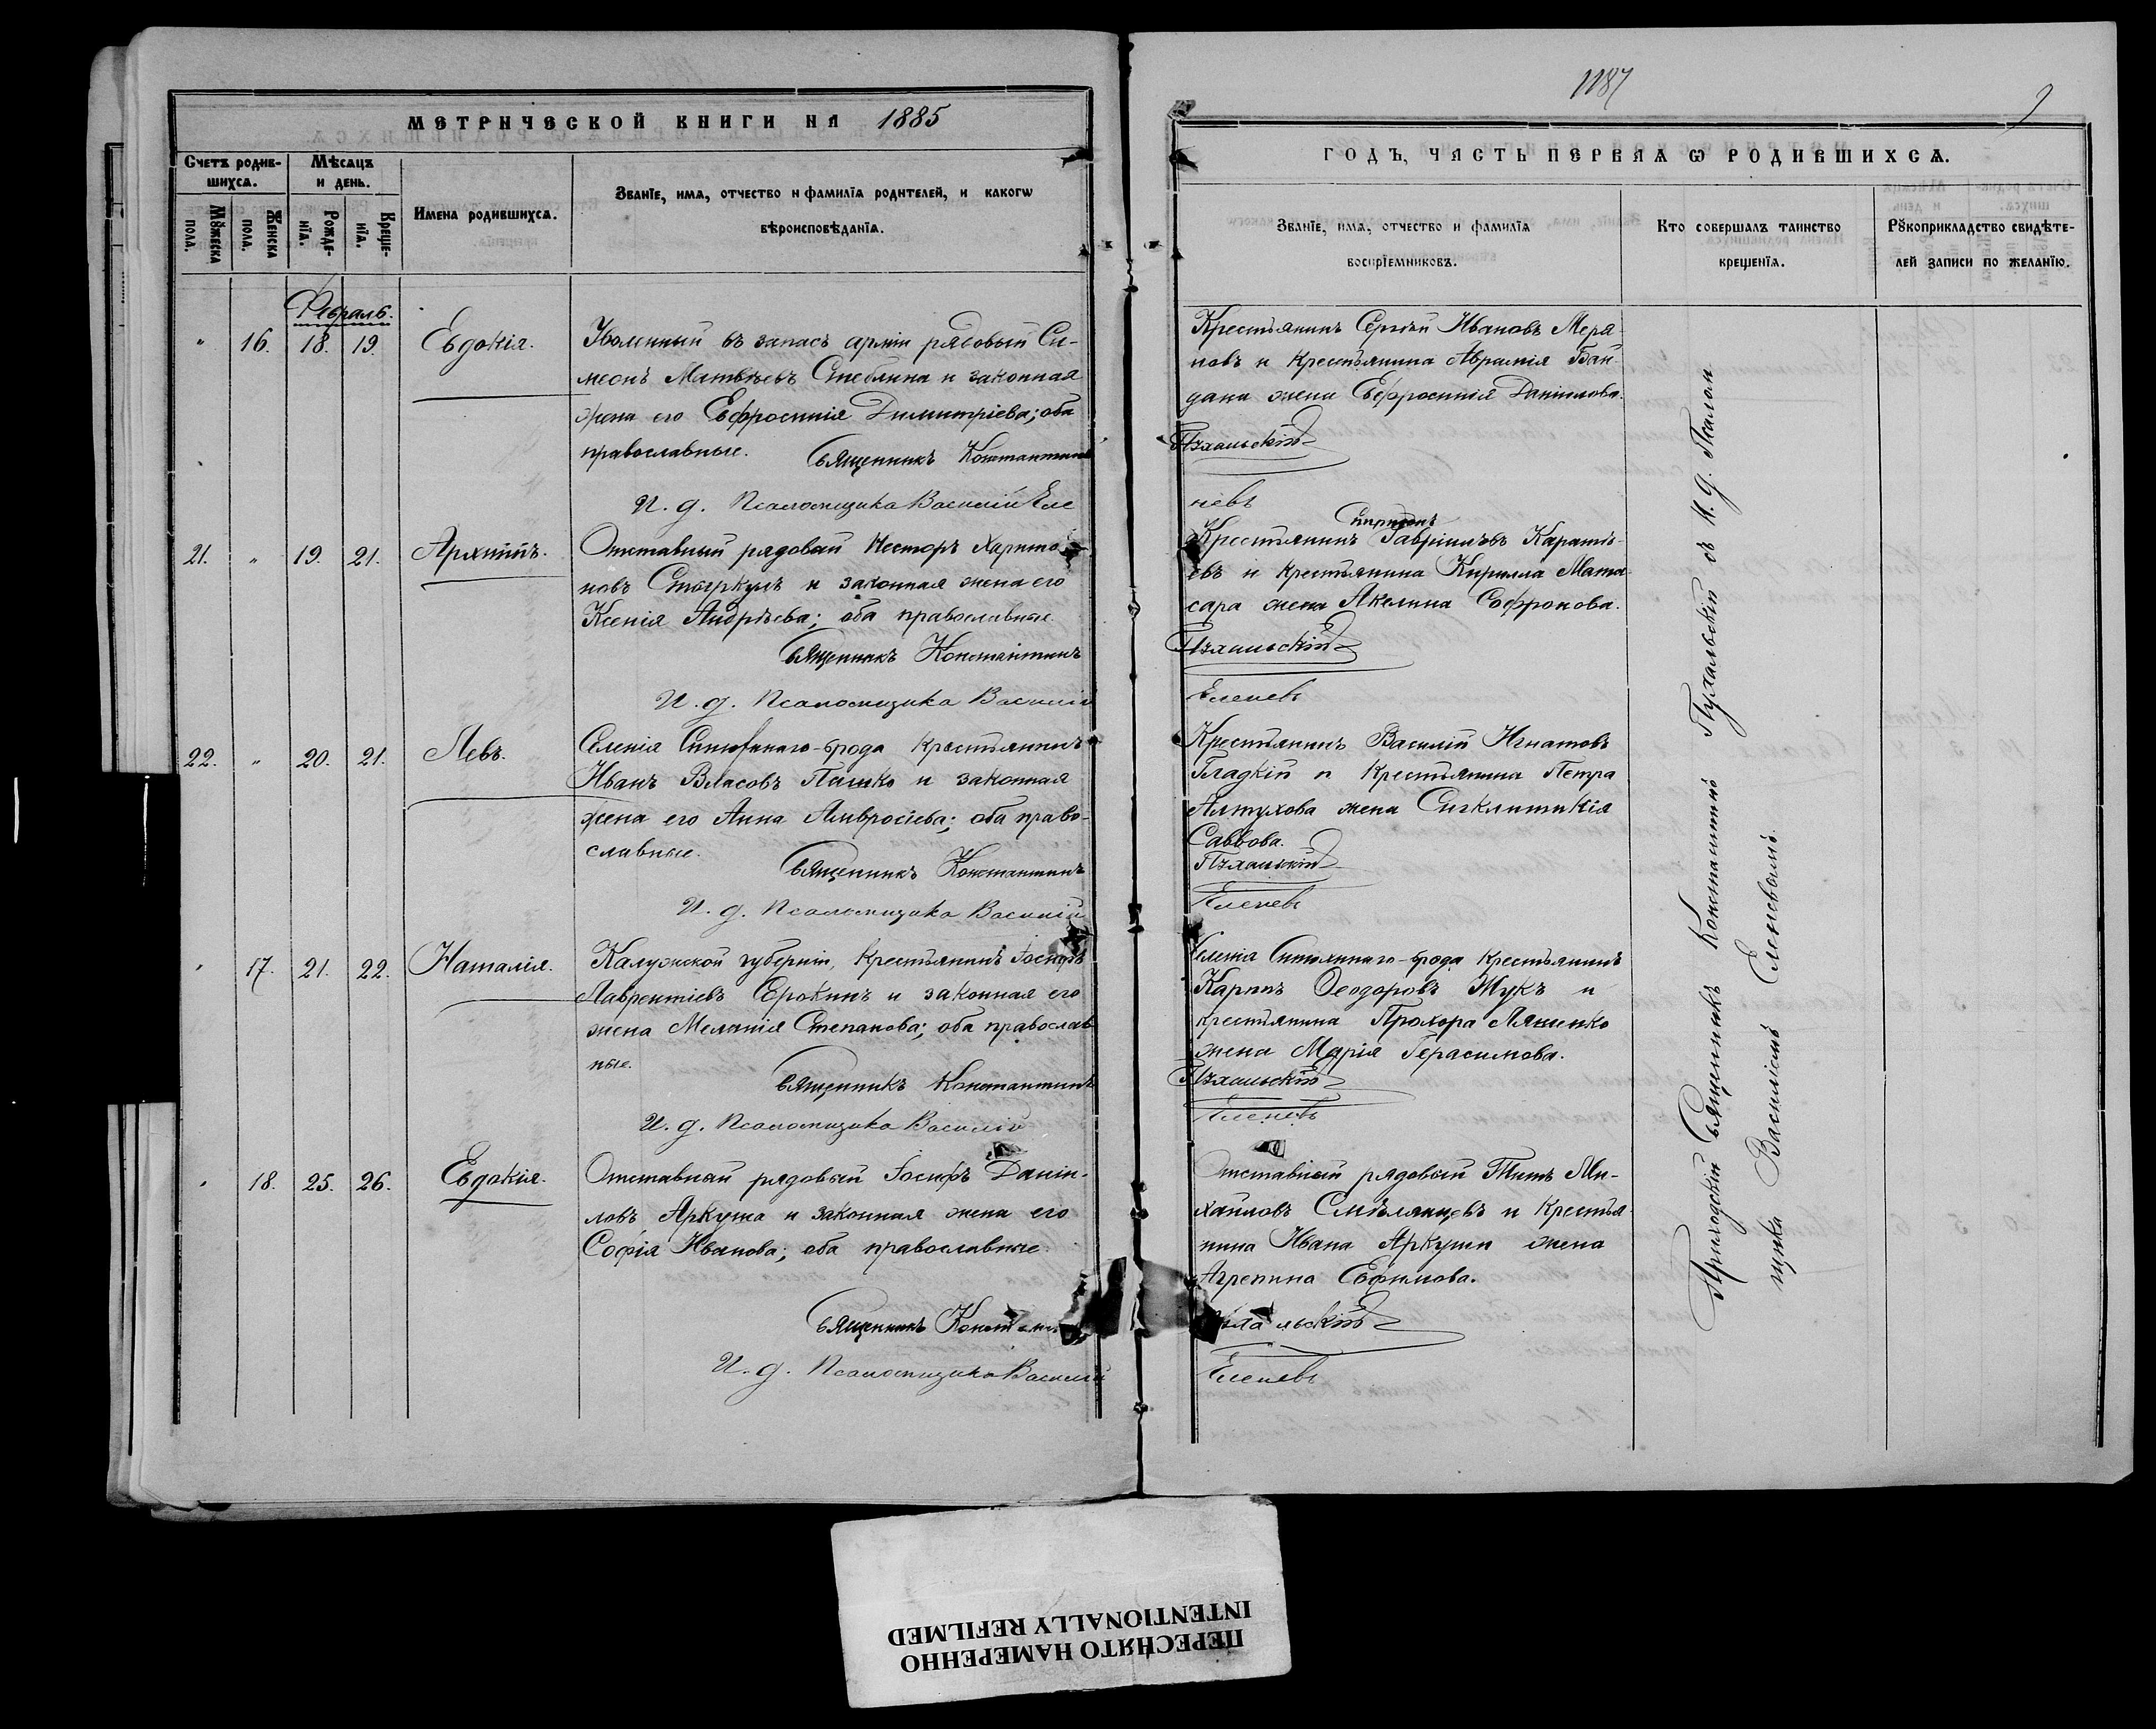 МЕТРИЧЕСКОЙ КНИГИ НА 1885
Счетъ родив-
шихся.
Мѣсяцъ
и день.
Мꙋжеска
пола.
Женска
пола.
Рожде-
нїя.
Креще-
нїя.
Имена родившихся.
Званїе, имя, отчество и фамилїя родителей, и какогѡ
вѣроисповѣданїя.
Февраль.
" 16. 18. 19. Евдокія.
Уволенный въ запасъ арміи рядовый Си-
меонъ Матвѣевъ Стеблина и законная
жена его Евфросинія Димитріева; оба
православные.
Священникъ Константинъ
И. д. Псаломщика Василій Еле
21. " 19. 21. Архиппъ.
Отставный рядовой Несторъ Харито
новъ и законная жена его
Ксенія Андрѣева; оба православные.
Священникъ Константинъ
И. д. Псаломщика Василій
22. " 20. 21. Левъ.
Селенія брода Крестьянинъ
Иванъ Власовъ и законная
жена его Анна Амвросіева; оба право-
славные.
Священникъ Константинъ
И. д. Псаломщика Василій
" 17. 21. 22. Наталія.
Калужской губерніи, Крестьянинъ Іосифъ
Лаврентіевъ Ерокинъ и законная его
жена Меланія Степанова; оба православ
ные.
Священникъ Константинъ
И. д. Псаломщика Василій
" 18. 25. 26. Евдокія.
Отставной рядовый Іосифъ Даніи-
ловъ Аркуша и законная жена его
Софія Иванова; оба православные.
Священникъ
И. д. Псаломщика Василій
1187
9
ГОДЪ, ЧАСТЬ ПЕРВАЯ Ѡ РОДИВШИХСЯ.
Званїе, имя, отчество и фамилїя
воспрїемниковъ.
Кто совершалъ таинство
крещенїя.
Рꙋкоприкладство свидѣте-
лей записи по желанїю.
Крестьянинъ Сергѣй Ивановъ Меря-
новъ и Крестьянина Аврамія Бан-
дана жена Евфросинія Даніилова.
Пухальскій
невъ
Спиридонъ
Крестьянинъ Гавріиловъ Каратѣ-
евъ и Крестьянина Кирилла Мата-
сара жена Акелина Софронова.
Пухальскій
Еленевъ
Крестьянинъ Василій Игнатовъ
Гладкій и Крестьянина Петра
Алтухова жена Сигклитикія
Саввова.
Пухальскій
Еленевъ
Селенія брода Крестьянинъ
Карпъ Ѳеодоровъ Жукъ и
крестьянина Прохора Ляшенко
жена Марія Герасимова.
Пухальскій
Еленевъ
Отставный рядовый Титъ Ми-
хайловъ Смѣлянцевъ и Крестья-
нина Ивана Аркуши жена
Агрепина Евфимова.
Еленевъ
Приходскій Священникъ Константинъ Пухальскій съ И. д. Псалом
щика Василіемъ Еленевымъ.
ПЕРЕСНЯТО НАМЕРЕННО
INTENTIONALLY REFILMED